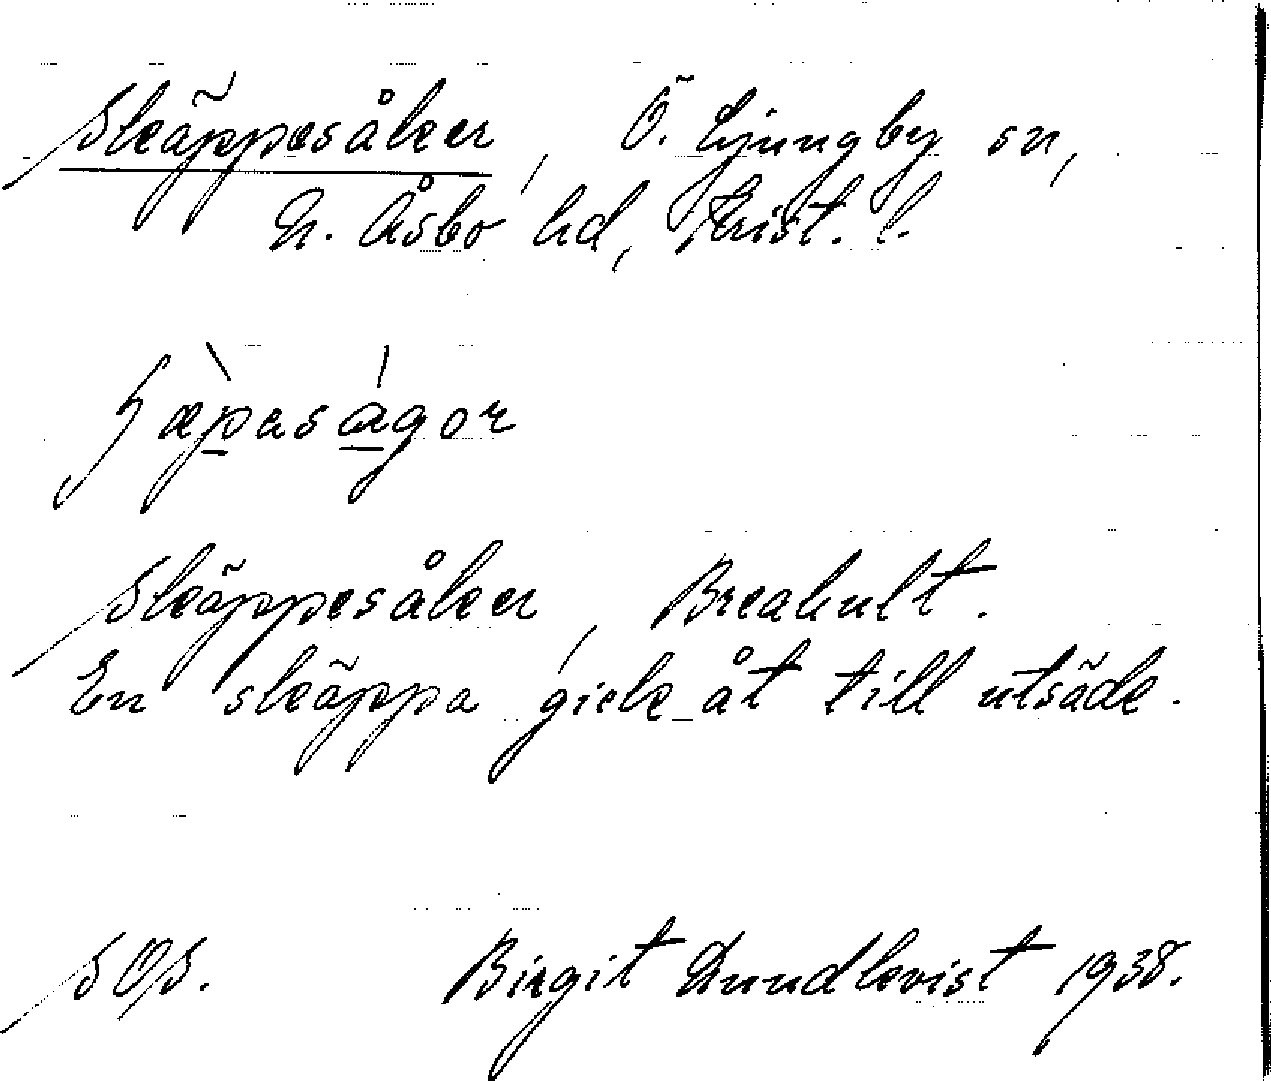 Skäppesåker, Ö. Ljungby sn,
N. Åsbo hd, Krist. l.
ʃæpasågor
Skäppesåker, Breahult.
En skäppa gick åt till utsäde.
SOS. Birgit Lundkvist 1938.